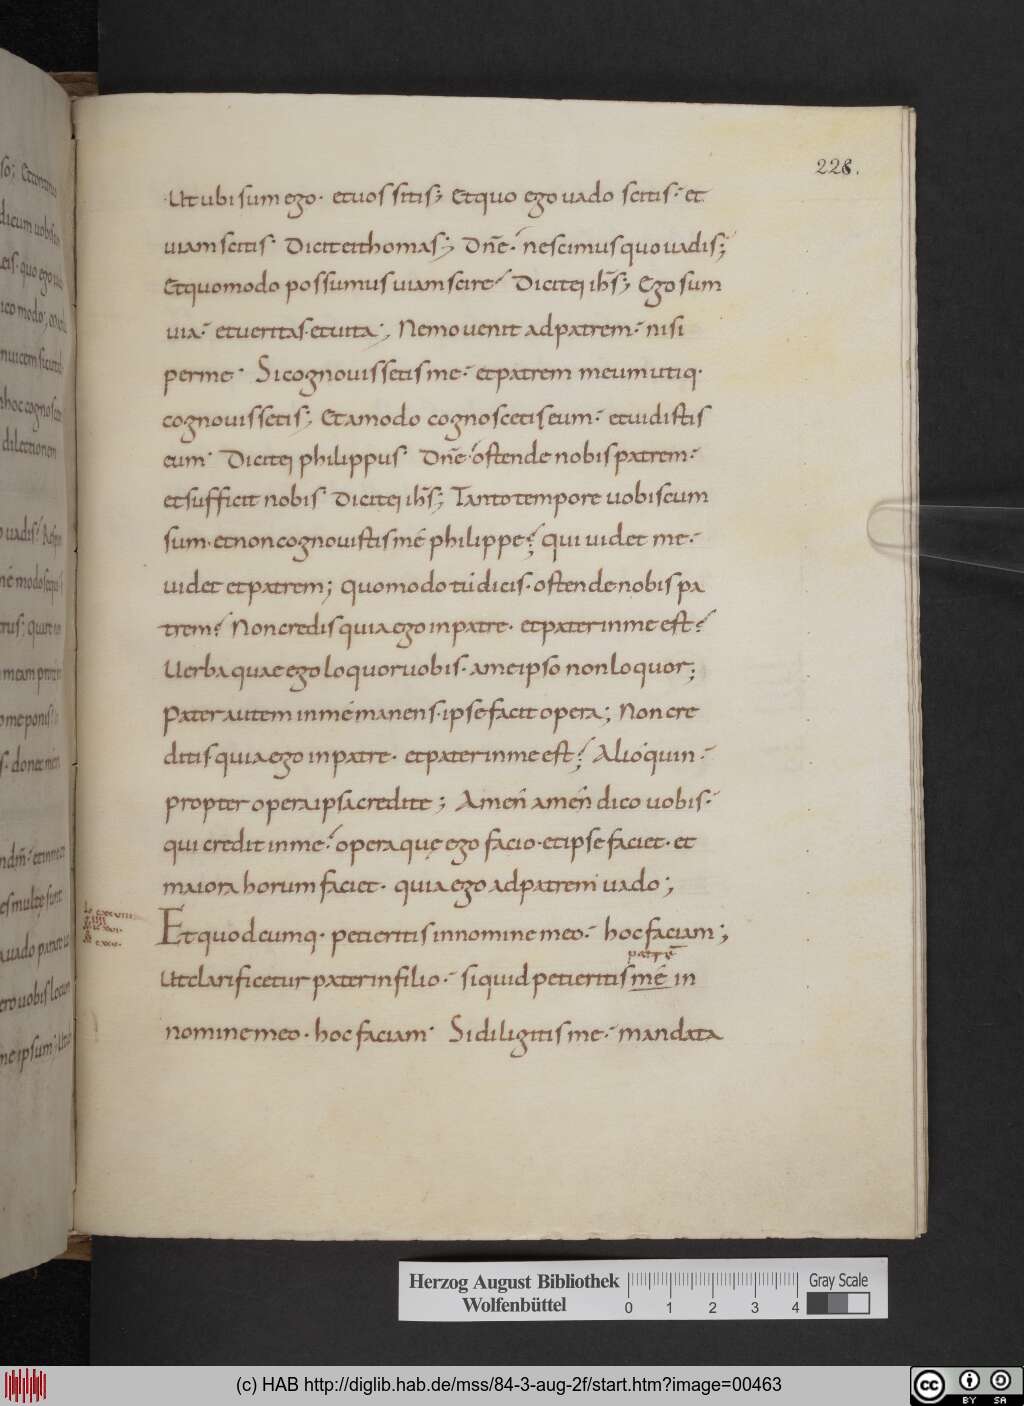 228.
Ut ubi sum ego· et uos sitis; Et quo ego uado scitis· et
uiam scitis· Dicit ei thomas; Dn̄e· nescimus quo uadis;
Et quomodo possumus uiam scire· Dicit ei ih̄s; Ego sum
uia· et ueritas· et uita; Nemo uenit ad patrem· nisi
per me· Si cognouissetis me· et patrem meum utiq·
cognouissetis; Et amodo cognoscetis eum· et uidistis
eum· Dicit ei philippus· Dn̄e· ostende nobis patrem·
et sufficit nobis· Dicit ei ih̄s; Tanto tempore uobiscum
sum· et non cognouistis mé philippe? qui uidet me·
uidet et patrem; quomodo tú dicis· ostende nobis pa
trem? Non credis quia ego in patre· et pater in me est?
Uerba quae ego loquor uobis· a me ipso non loquor;
Pater autem in mé manens· ipse facit opera; Non cre
ditis quia ego in patre· et pater in me est? Alioquin·
propter opera ipsa credite; Amen amen dico uobis·
qui credit in me· opera quę ego facio· et ipse faciet· et
maiora horum faciet· quia ego ad patrem uado;
Et quodcumq· petieritis in nomine meo· hoc faciam;
patrē
Ut clarificetur pater in filio· si quid petieritis mé in
nomine meo· hoc faciam· Si diligitis me· mandata
Herzog August Bibliothek
Wolfenbüttel
0 1 2 3 4
Gray Scale
(c) HAB http://diglib.hab.de/mss/84-3-aug-2f/start.htm?image=00463
cc BY SA